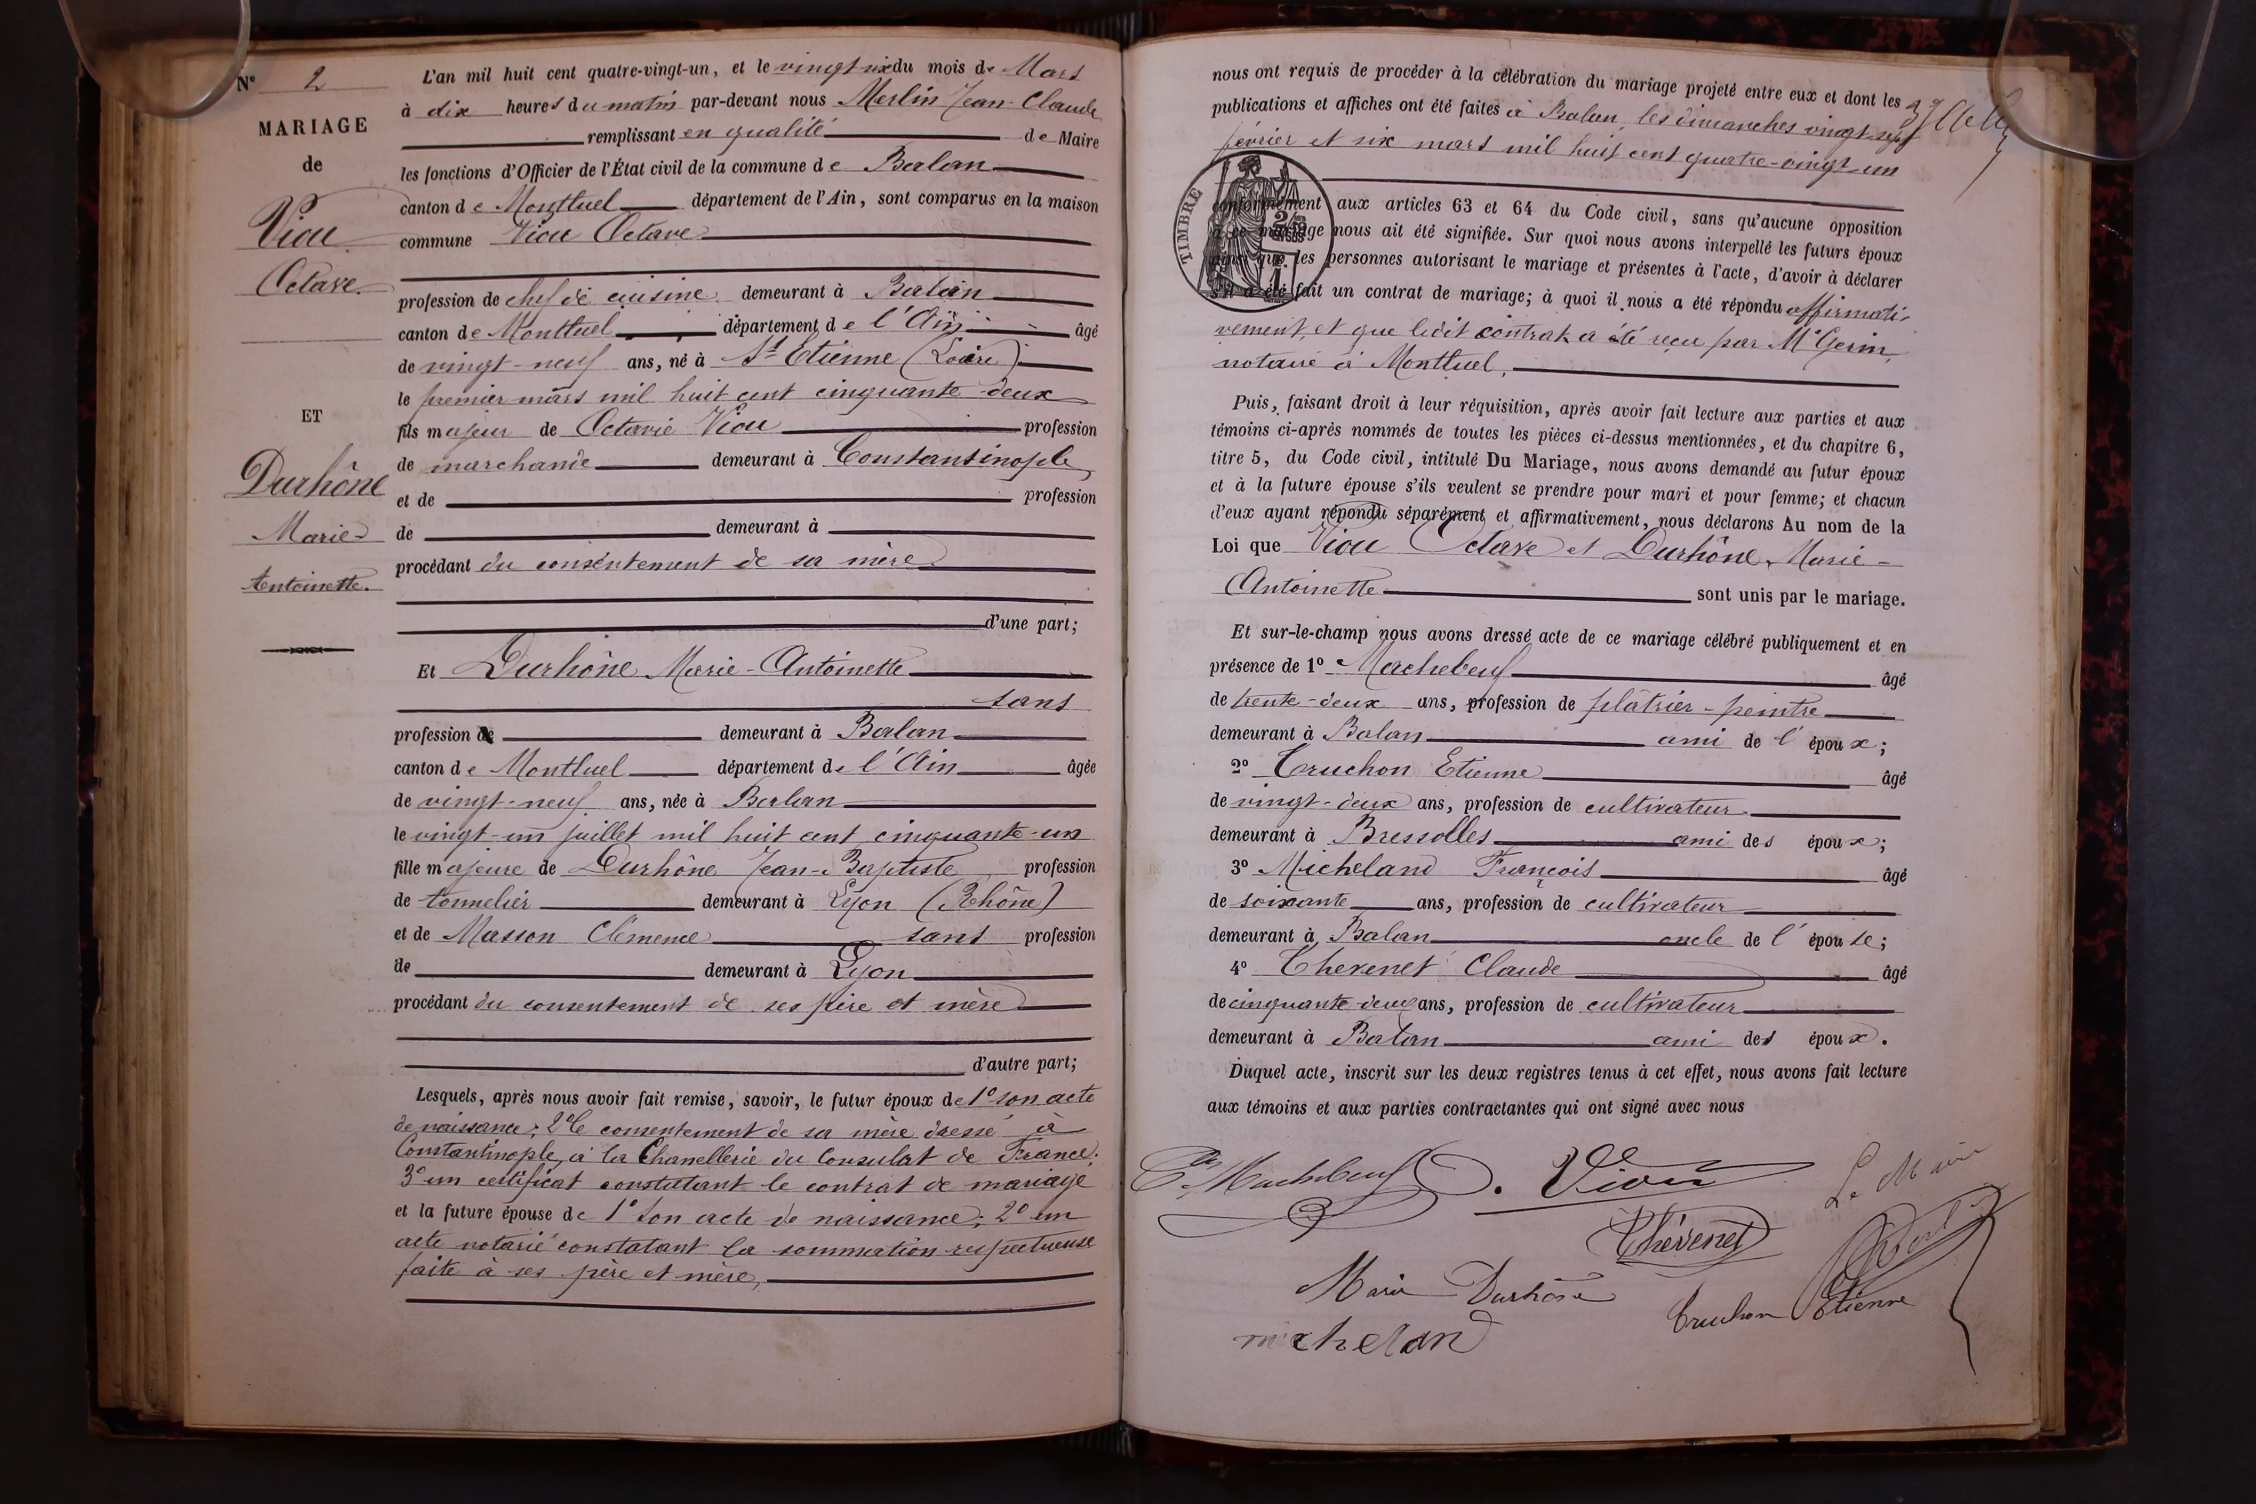 N° 2
MARIAGE
de
Viou
Octave.
ET
Durhône
Marie
Antoinette.
L'an mil huit cent quatre-vingt-un, et le vingt-six du mois de Mars
à dix heures du matin par-devant nous Merlin Jean-Claude
remplissant en qualité de Maire
les fonctions d'Officier de l'État civil de la commune de Balan
canton de Montluel département de l'Ain, sont comparus en la maison
commune Viou Octave
profession de chef de cuisine demeurant à Balan
canton de Montluel département de l'Ain âgé
de vingt-neuf ans, né à St Etienne (Loire)
le premier mars mil huit cent cinquante-deux
fils majeur de Octavie Viou profession
de marchande demeurant à Constantinople
et de profession
de demeurant à
procédant du consentement de sa mère
d'une part;
Et Durhône Marie-Antoinette
sans
profession de demeurant à Balan
canton de Montluel département de l'Ain âgée
de vingt-neuf ans, née à Balan
le vingt-un juillet mil huit cent cinquante-un
fille majeure de Durhône Jean-Baptiste profession
de tonnelier demeurant à Lyon (Rhône)
et de Masson Clémence sans profession
de demeurant à Lyon
procédant du consentement de ses père et mère
d'autre part;
Lesquels, après nous avoir fait remise, savoir, le futur époux de 1° son acte
de naissance; 2° le consentement de sa mère dressé à
Constantinople, à la Chanellerie du Consulat de France;
3° un certificat constatant le contrat de mariage
et la future épouse de 1° son acte de naissance; 2° un
acte notarié constatant la sommation respectueuse
faite à ses père et mère,
nous ont requis de procéder à la célébration du mariage projeté entre eux et dont les
publications et affiches ont été faites à Balan, les dimanches vingt-sept
février et six mars mil huit cent quatre-vingt-un
TIMBRE
conformément aux articles 63 et 64 du Code civil, sans qu'aucune opposition
à ce mariage nous ait été signifiée. Sur quoi nous avons interpellé les futurs époux
ainsi que les personnes autorisant le mariage et présentes à l'acte, d'avoir à déclarer
s'il a été fait un contrat de mariage; à quoi il nous a été répondu affirmati-
vement, et que ledit contrat a été reçu par Me Gerin,
notaire à Montluel,
Puis, faisant droit à leur réquisition, après avoir fait lecture aux parties et aux
témoins ci-après nommés de toutes les pièces ci-dessus mentionnées, et du chapitre 6,
titre 5, du Code civil, intitulé Du Mariage, nous avons demandé au futur époux
et à la future épouse s'ils veulent se prendre pour mari et pour femme; et chacun
d'eux ayant répondu séparément et affirmativement, nous déclarons Au nom de la
Loi que Viou Octave et Durhône, Marie-
Antoinette sont unis par le mariage.
Et sur-le-champ nous avons dressé acte de ce mariage célébré publiquement et en
présence de 1° Machebeuf âgé
de trente-deux ans, profession de plâtrier-peintre
demeurant à Balan ami de l'époux;
2° Truchon Etienne âgé
de vingt-deux ans, profession de cultivateur
demeurant à Bressolles ami des époux;
3° Micheland François âgé
de soixante ans, profession de cultivateur
demeurant à Balan oncle de l'épouse;
4° Thevenet Claude âgé
de cinquante-deux ans, profession de cultivateur
demeurant à Balan ami des époux.
Duquel acte, inscrit sur les deux registres tenus à cet effet, nous avons fait lecture
aux témoins et aux parties contractantes qui ont signé avec nous
Machebeuf O. Viou Le Maire
Thévenet
Marie Durhône
Truchon Etienne
micheland